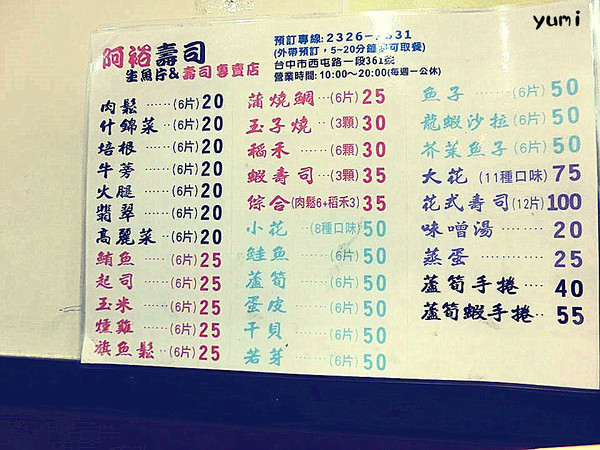 yumi
阿裕壽司
生魚片&壽司專賣店
預訂專線:2326-
(外帶預訂,5~20分鐘 可取餐)
台中市西屯路一段361號
營業時間:10:00~20:00(每週一公休)
肉鬆……(6片)20
什錦菜‥(6片)20
培根……(6片)20
牛蒡……(6片)20
火腿……(6片)20
翡翠……(6片)20
高麗菜‥(6片)20
鮪魚……(6片)25
起司……(6片)25
玉米……(6片)25
燻雞……(6片)25
旗魚鬆‥(6片)25
蒲燒鯛‥(6片)25
玉子燒‥(3顆)30
稻禾……(3顆)30
蝦壽司‥(3顆)35
綜合(肉鬆6+稻禾3)35
小花 (8種口味)50
鮭魚……(6片)50
蘆筍……(6片)50
蛋皮……(6片)50
干貝……(6片)50
若芽……(6片)50
魚子……(6片)50
龍蝦沙拉(6片)50
芥菜魚子(6片)50
大花 (11種口味)75
花式壽司(12片)100
味噌湯……20
蒸蛋……25
蘆筍手捲……40
蘆筍蝦手捲‥55